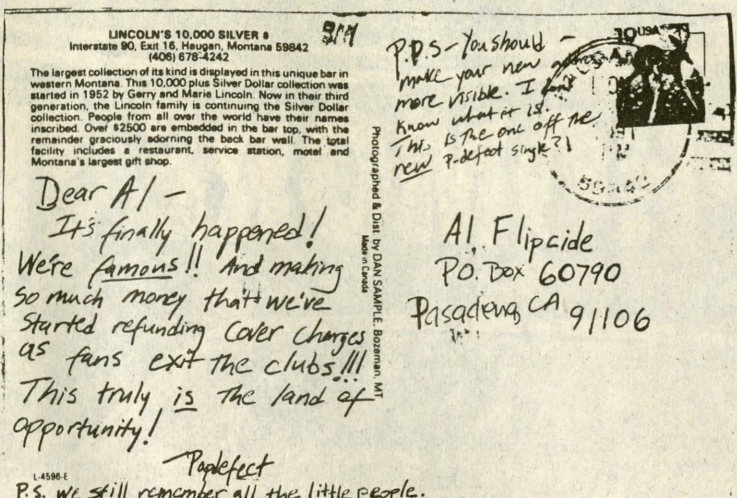 LINCOLN'S 10,000 SILVER $
Interstate 90, Exit 16, Haugan, Montana 59842
(406) 678-4242
The largest collection of its kind is displayed in this unique bar in
western Montana. This 10,000 plus Silver Dollar collection was
started in 1952 by Gerry and Marie Lincoln. Now in their third
generation, the Lincoln family is continuing the Silver Dollar
collection. People from all over the world have their names
inscribed. Over $2500 are embedded in the bar top, with the
remainder graciously adorning the back bar wall. The total
facility includes a restaurant, service station, motel and
Montana's largest gift shop.
Dear Al -
It's finally happened!
We're famous!! And making
so much money that we've
started refunding cover charges
as fans exit the clubs!!!
This truly is the land of
opportunity!
Popdefect
L-4596-E
P.S. we still remember all the little people.
Photographed & Dist. by DAN SAMPLE, Bozeman, MT
Made in Canada
P.P.S - You should -
make your new address
more visible. I don't
know what it is.
This is the one off the
new P-defect single?!
10 USA
59842
Al Flipcide
P.O. Box 60790
Pasadena, CA 91106